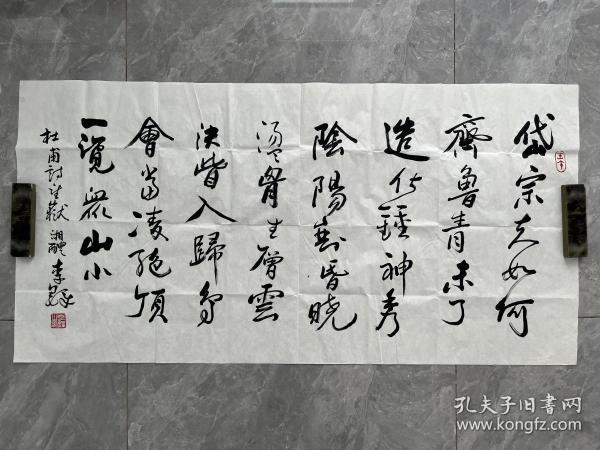 岱宗夫如何
齊魯青未了
造化鍾神秀
陰陽割昏曉
盪胷生層雲
決眥入歸鳥
會當凌絕頂
一覽眾山小
杜甫詩望嶽 湘醴 李
孔夫子旧书网
www.kongfz.com